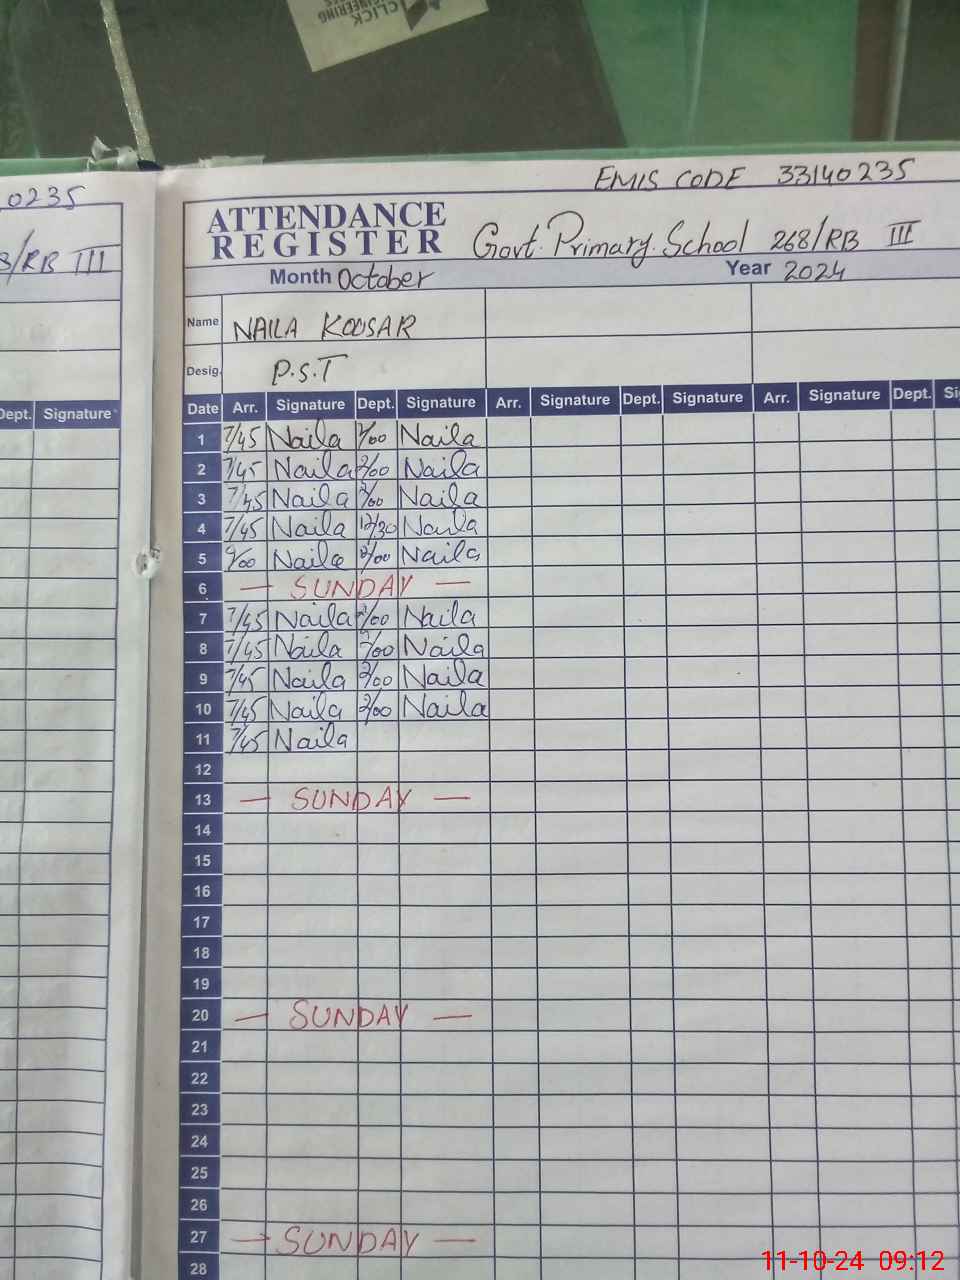 CLICK
ENGINEERING
0235
EMIS CODE 33140235
ATTENDANCE
REGISTER
Govt. Primary School 268/RB III
/RB III
Month October
Year 2024
Name NAILA KOUSAR
Desig. P.S.T
Dept. Signature
Date Arr. Signature Dept. Signature Arr. Signature Dept. Signature Arr. Signature Dept. Si
1 7/45 Naila 2/00 Naila
2 7/45 Naila 2/00 Naila
3 7/45 Naila 2/00 Naila
4 7/45 Naila 12/30 Naila
5 9/00 Naila 2/00 Naila
6 — SUNDAY —
7 7/45 Naila 2/00 Naila
8 7/45 Naila 2/00 Naila
9 7/45 Naila 2/00 Naila
10 7/45 Naila 2/00 Naila
11 7/45 Naila
12
13 — SUNDAY —
14
15
16
17
18
19
20 — SUNDAY —
21
22
23
24
25
26
27 — SUNDAY —
28
11-10-24 09:12